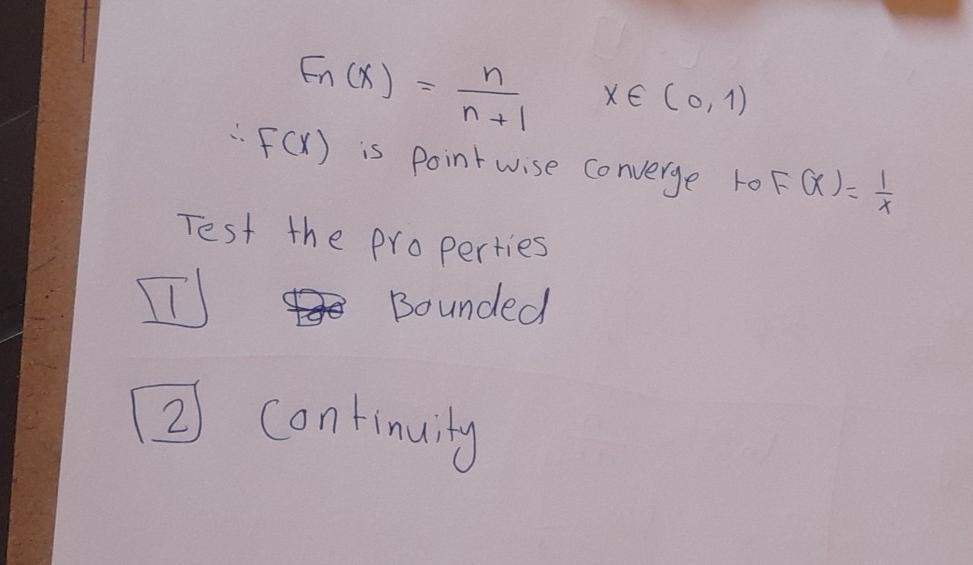 Fn(x) = n/(n+1) x∈(0,1)
∴ F(x) is pointwise converge to F(x)= 1/x
Test the properties
1 Bounded
2 Continuity